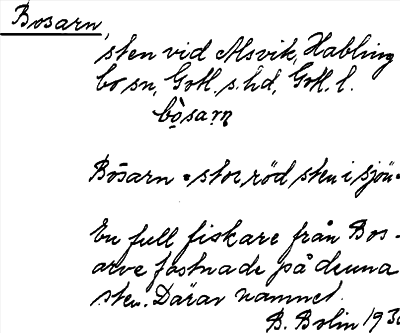 Bosarn,
sten vid Alsvik, Habling
bo sn, Gotl. s. hd, Gotl. l.
bosarn
Bosarn = stor, röd sten i sjön.
En full fiskare från Bos-
arve fastnade på denna
sten. Därav namnet.
B. Bolin 193